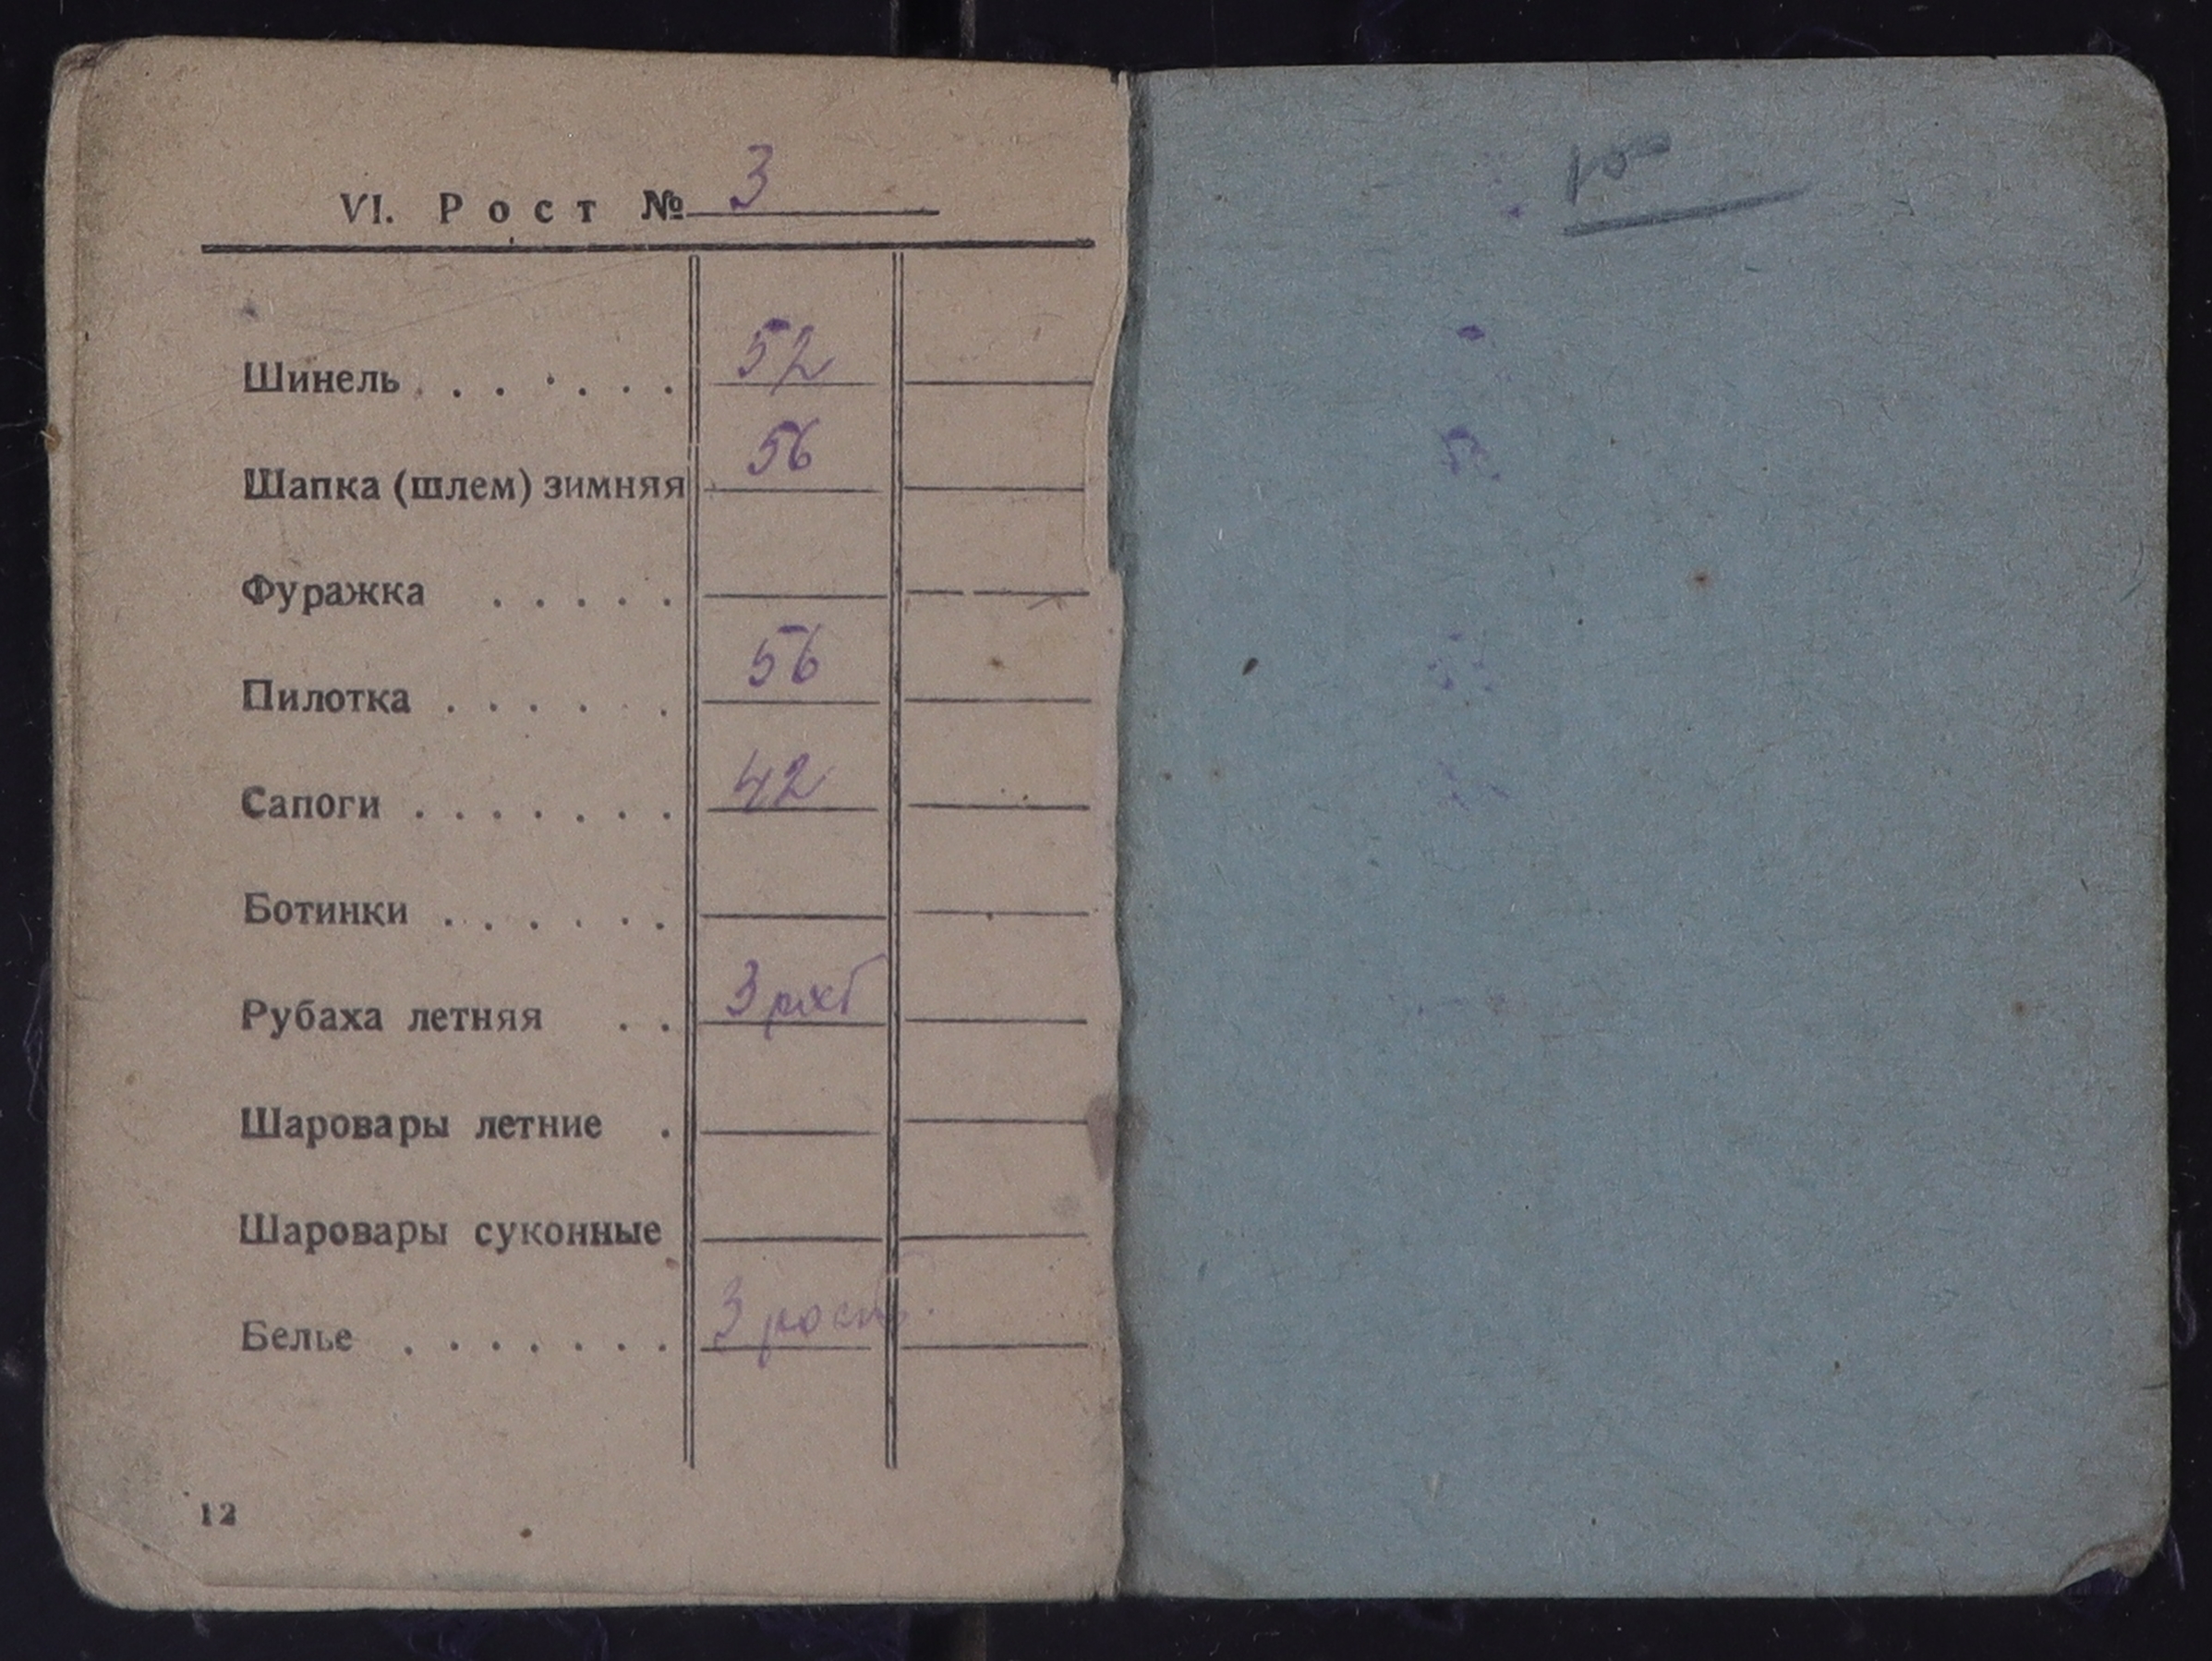 VI. Рост № 3
Шинель . . . . . . 52
Шапка (шлем) зимняя 56
Фуражка . . . . .
Пилотка . . . . . . 56
Сапоги . . . . . . . 42
Ботинки . . . . . .
Рубаха летняя . . 3
Шаровары летние .
Шаровары суконные
Белье . . . . . . . 3 рост.
12